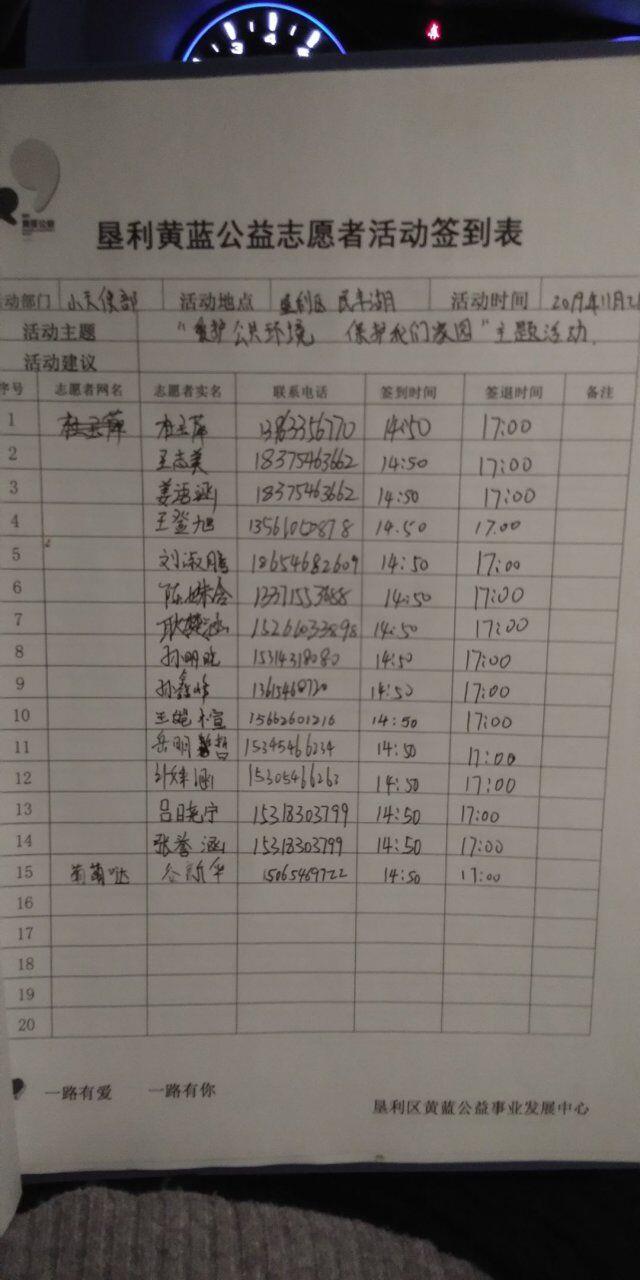 3 4
黄蓝公益
垦利黄蓝公益志愿者活动签到表
活动部门 小天使部 活动地点 垦利区 民丰湖 活动时间 2019年11月
活动主题 "爱护公共环境 保护我们家园"主题活动.
活动建议
序号 志愿者网名 志愿者实名 联系电话 签到时间 签退时间 备注
1 14:50 17:00
2 王志美 18375463662 14:50 17:00
3 姜语涵 18375463662 14:50 17:00
4 王登旭 13561050878 14:50 17:00
5 刘淑鹏 18654682609 14:50 17:00
6 14:50 17:00
7 耿楚涵 15266033898 14:50 17:00
8 孙明晓 15314318080 14:50 17:00
9 孙鑫峰 14:50 17:00
10 王 宣 15662601216 14:50 17:00
11 岳明哲 15345466234 14:50 17:00
12 涵 15305466263 14:50 17:00
13 吕晓宁 15318303799 14:50 17:00
14 张誉涵 15318303799 14:50 17:00
15 萌萌哒 谷新华 15065469722 14:50 17:00
16
17
18
19
20
一路有爱 一路有你
垦利区黄蓝公益事业发展中心